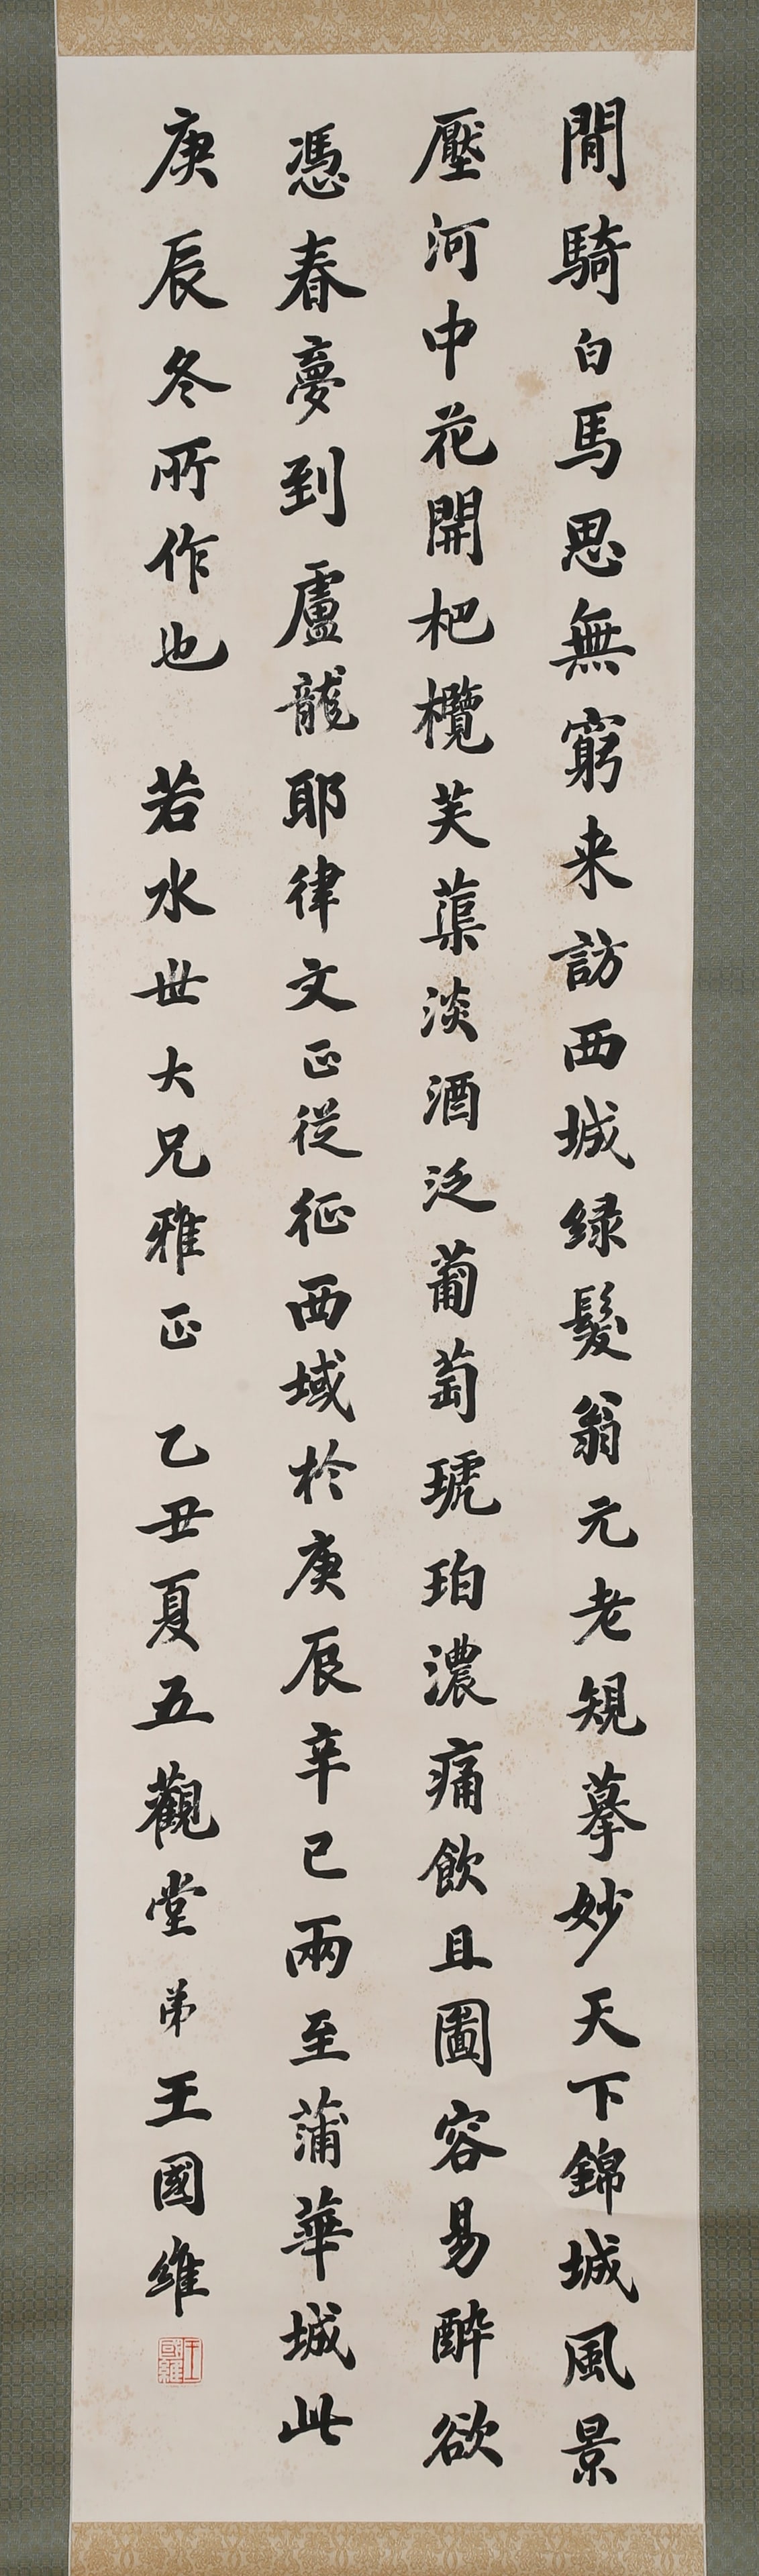 閒騎白馬思無窮来訪西城緑髮翁元老規摹妙天下錦城風景
壓河中花開杷欖芙蕖淡酒泛葡萄琥珀濃痛飲且圖容易醉欲
憑春夢到盧龍耶律文正從征西域於庚辰辛巳兩至蒲華城此
庚辰冬所作也 若水世大兄雅正 乙丑夏五觀堂弟王國維
王國維